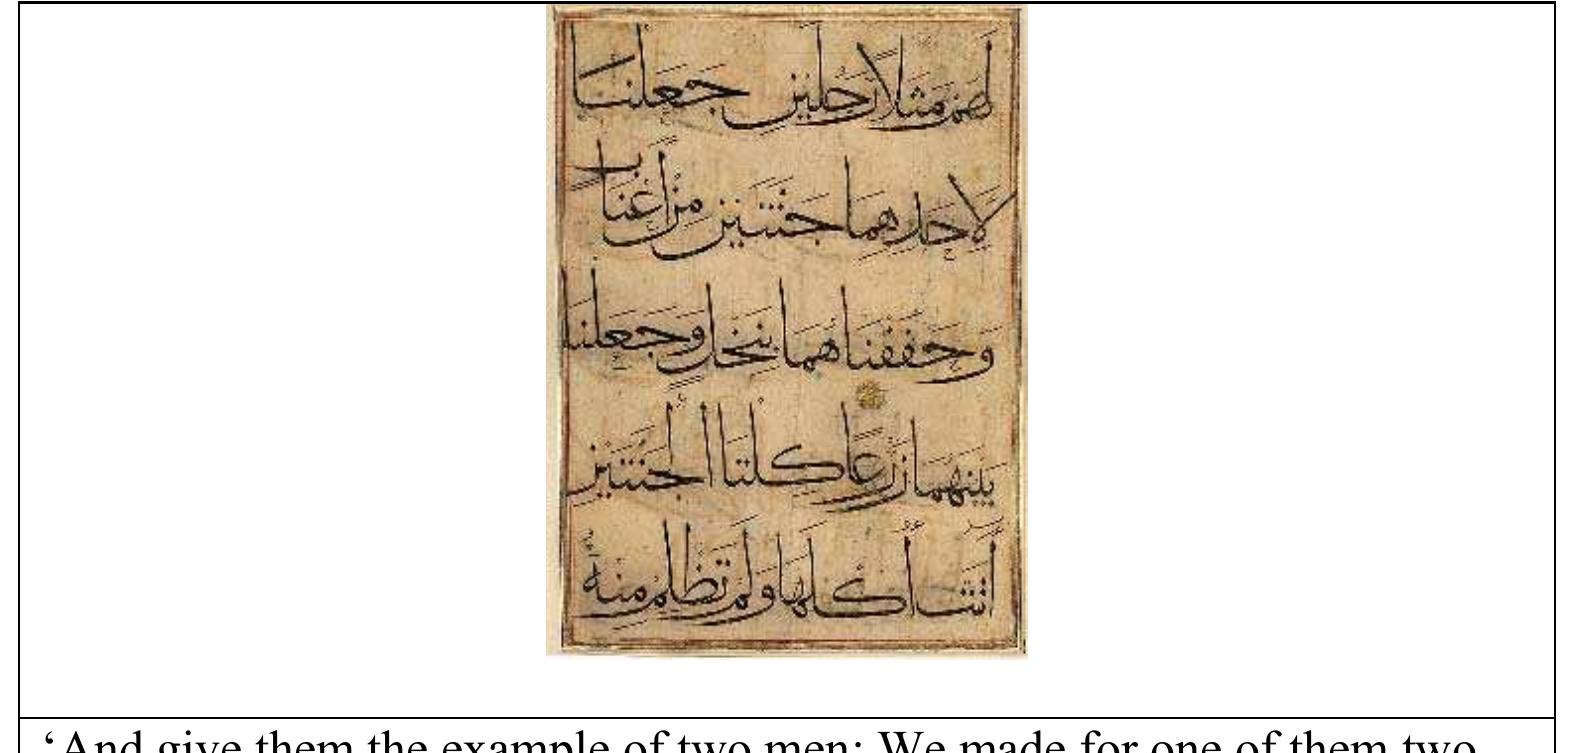 لَهُم مَثَلًا رَجُلَيْنِ جَعَلْنَا
لِأَحَدِهِمَا جَنَّتَيْنِ مِنْ أَعْنَابٍ
وَحَفَفْنَاهُمَا بِنَخْلٍ وَجَعَلْنَا
بَيْنَهُمَا زَرْعًا كِلْتَا الْجَنَّتَيْنِ
أَتَتْ أُكُلَهَا وَلَمْ تَظْلِمْ مِنْهُ
‘And give them the example of two men: We made for one of them two